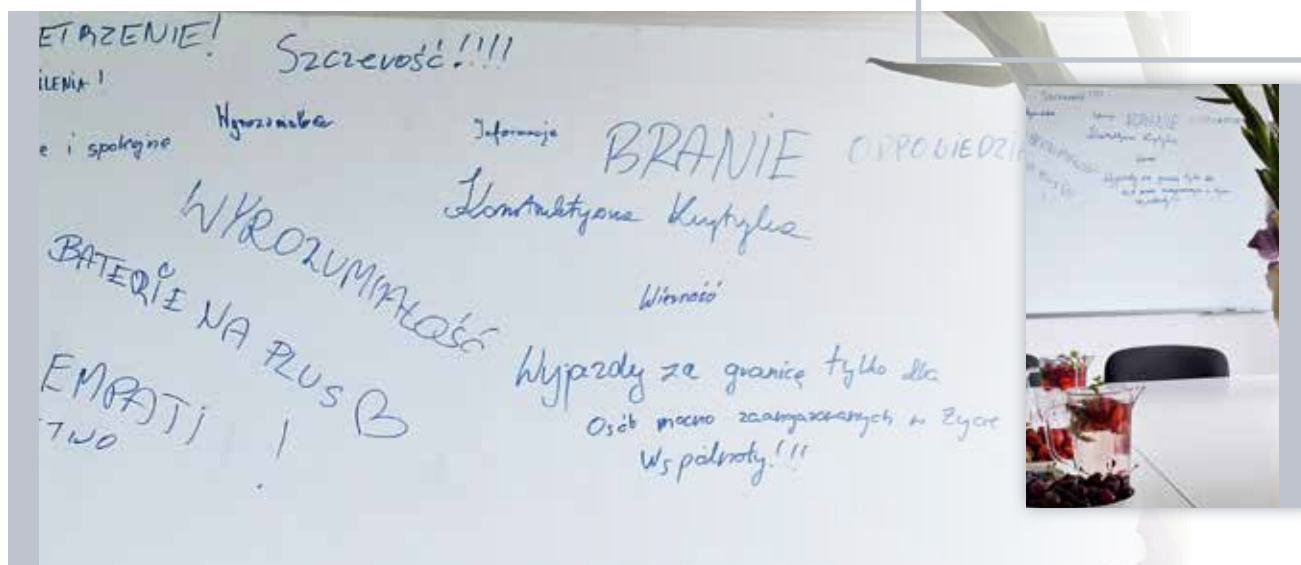 ETRZENIE!
Szczerość!!!!
ILENIA!
e i spokojne
Wyrozumiałość
Informacja
BRANIE ODPOWIEDZI
Konstruktywna Krytyka
WYROZUMIAŁOŚĆ
BATERIE NA PLUS
Wierność
EMPATJI !
TWO
Wyjazdy za granicę tylko dla
Osób mocno zaangażowanych w Życie
Wspólnoty!!!